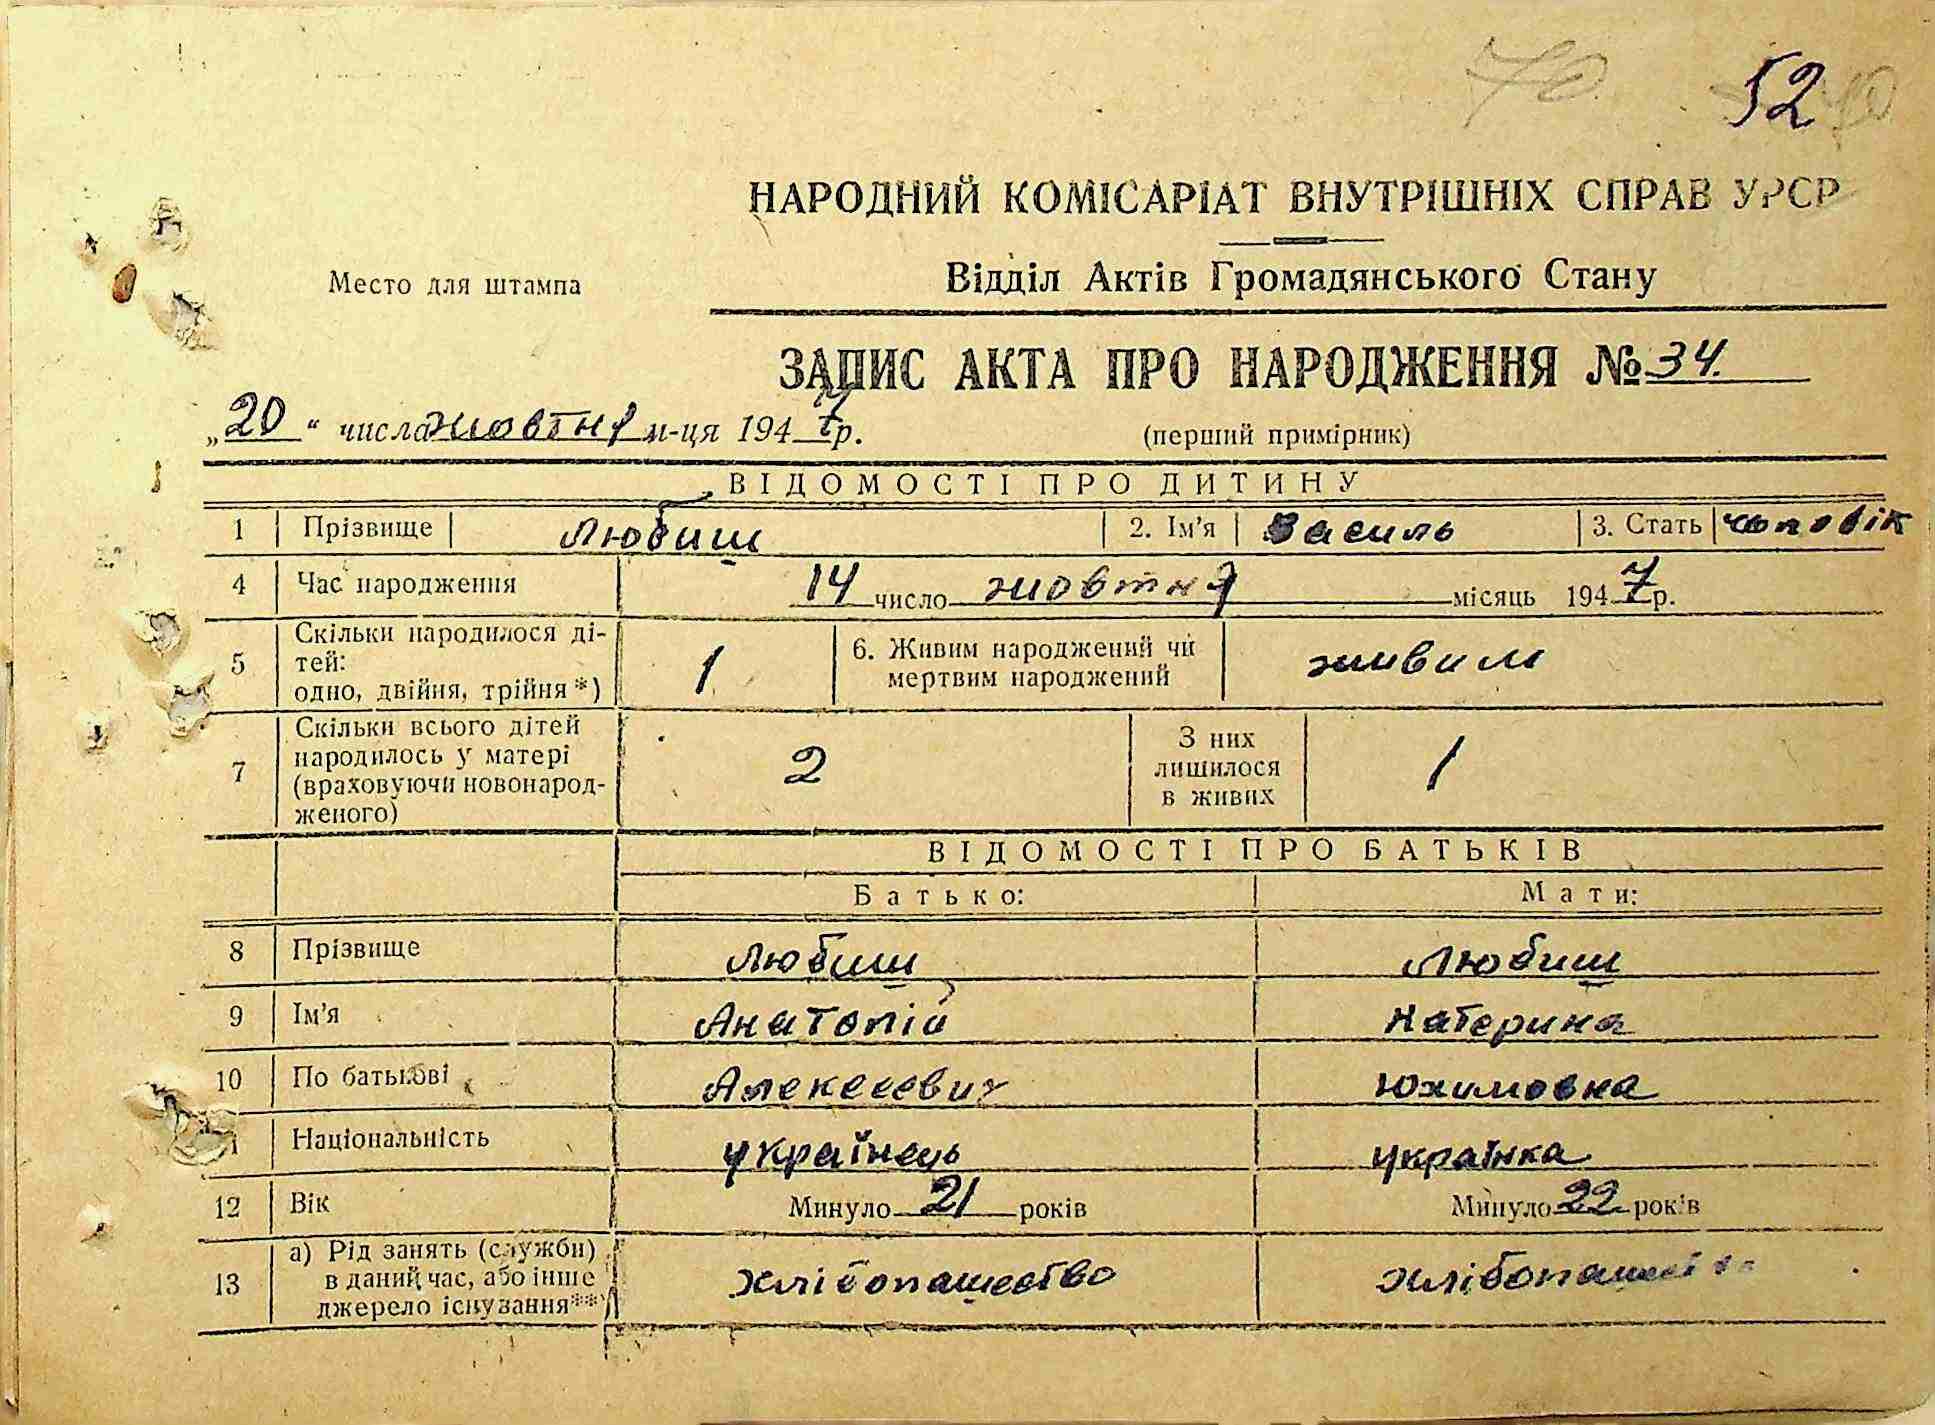 70
52
НАРОДНИЙ КОМІСАРІАТ ВНУТРІШНІХ СПРАВ УРСР
Место для штампа
Відділ Актів Громадянського Стану
ЗАПИС АКТА ПРО НАРОДЖЕННЯ № 34.
„20“ числа жовтня м-ця 1947р.
(перший примірник)
ВІДОМОСТІ ПРО ДИТИНУ
1 Прізвище Любиш 2. Ім'я Василь 3. Стать чоловік
4 Час народження 14 число жовтня місяць 1947р.
5 Скільки народилося ді-
тей:
одно, двійня, трійня*) 1 6. Живим народжений чи
мертвим народжений живим
7 Скільки всього дітей
народилось у матері
(враховуючи новонарод-
женого) 2 З них
лишилося
в живих 1
ВІДОМОСТІ ПРО БАТЬКІВ
Батько: Мати:
8 Прізвище Любиш Любиш
9 Ім'я Анатолій Катерина
10 По батькові Алексеевич Юхимовна
Національність українець українка
12 Вік Минуло 21 років Минуло 22 років
13 а) Рід занять (служби)
в даний час, або інше
джерело існування**) хлібопашество